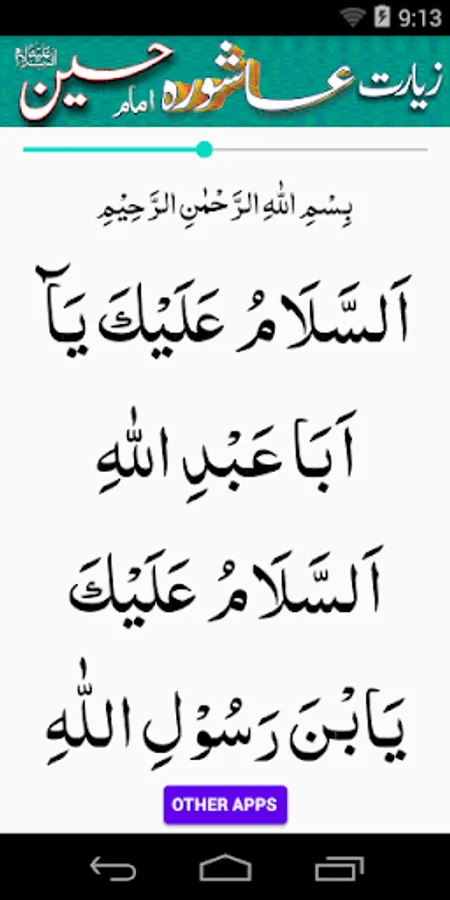 9:13
زیارت عاشورہ امام حسین علیہ السلام
بِسْمِ اللهِ الرَّحْمٰنِ الرَّحِيْمِ
اَلسَّلَامُ عَلَيْكَ يَآ
اَبَا عَبْدِ اللهِ
اَلسَّلَامُ عَلَيْكَ
يَابْنَ رَسُوْلِ اللهِ
OTHER APPS